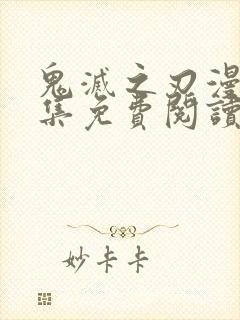 鬼滅之刃漫
集免費閱讀
妙卡卡